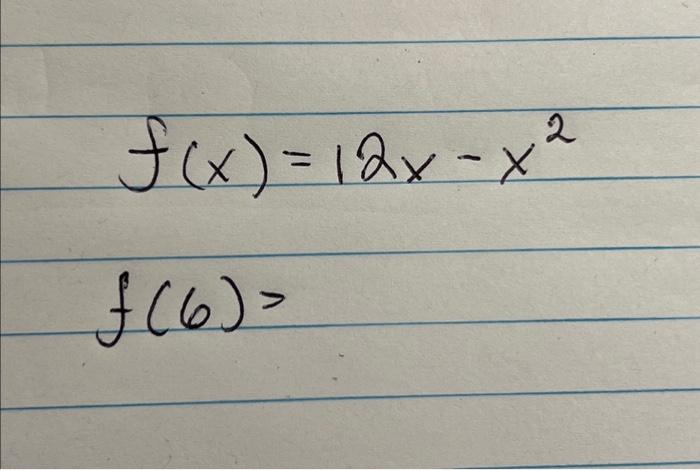 f(x) = 12x - x²
f(6) =